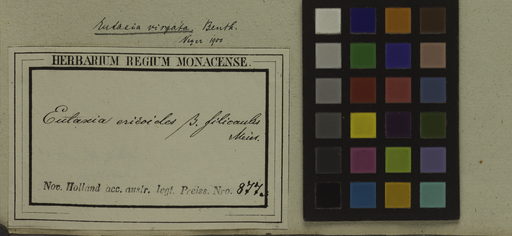 Eutaxia virgata, Benth.
1900
HERBARIUM REGIUM MONACENSE.
Eutaxia ericoides β. filicaulis
Meisn.
Nov. Holland occ. austr. legt. Preiss. Nro. 877.